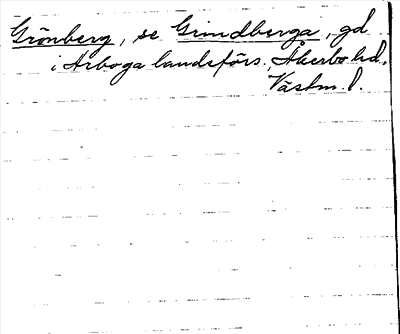 Grönberg, se Grindberga, gd
i Arboga landsförs., Åkerbo hd,
Västm. l.